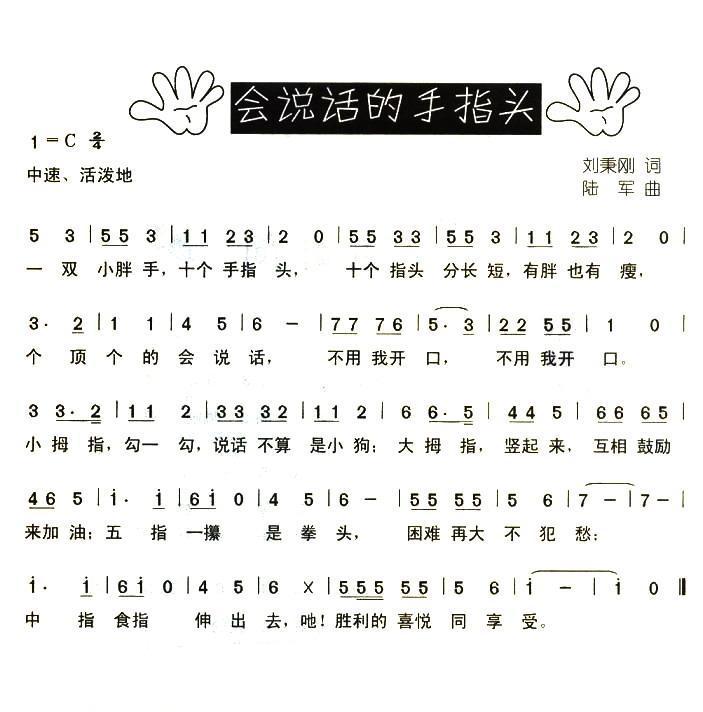 会说话的手指头
1=C 2/4
中速、活泼地
刘秉刚 词
陆 军 曲
5 3 | 55 3 | 11 23 | 2 0 | 55 33 | 55 3 | 11 23 | 2 0 |
一 双 小胖 手，十个 手指 头， 十个 指头 分长 短，有胖 也有 瘦，
3· 2 | 1 1 | 4 5 | 6 – | 77 76 | 5· 3 | 22 55 | 1 0 |
个 顶 个 的 会 说 话， 不用 我开 口， 不用 我开 口。
3 3·2 | 11 2 | 33 32 | 11 2 | 6 6·5 | 44 5 | 66 65 |
小 拇 指，勾一 勾，说话 不算 是小 狗；大 拇 指，竖起 来，互相 鼓励
46 5 | i· i | 6i 0 | 4 5 | 6 – | 55 55 | 5 6 | 7 – | 7 – |
来加 油；五 指 一攥 是 拳 头， 困难 再大 不 犯 愁；
i· i | 6i 0 | 4 5 | 6 X | 555 55 | 5 6 | i – | i 0 ‖
中 指 食指 伸 出 去，吔！胜利的 喜悦 同 享 受。